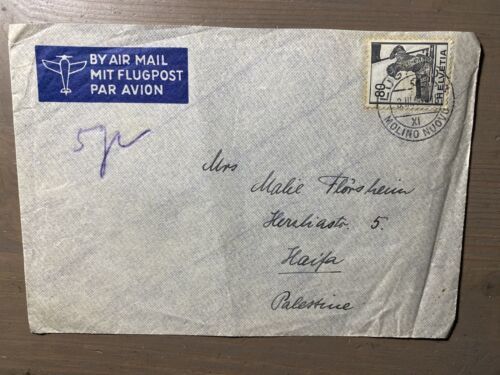 BY AIR MAIL
MIT FLUGPOST
PAR AVION
80
HELVETIA
XI
MOLINO NUOVO
Mrs
Malie Flörsheim
Herzliastr. 5.
Haifa
Palestine